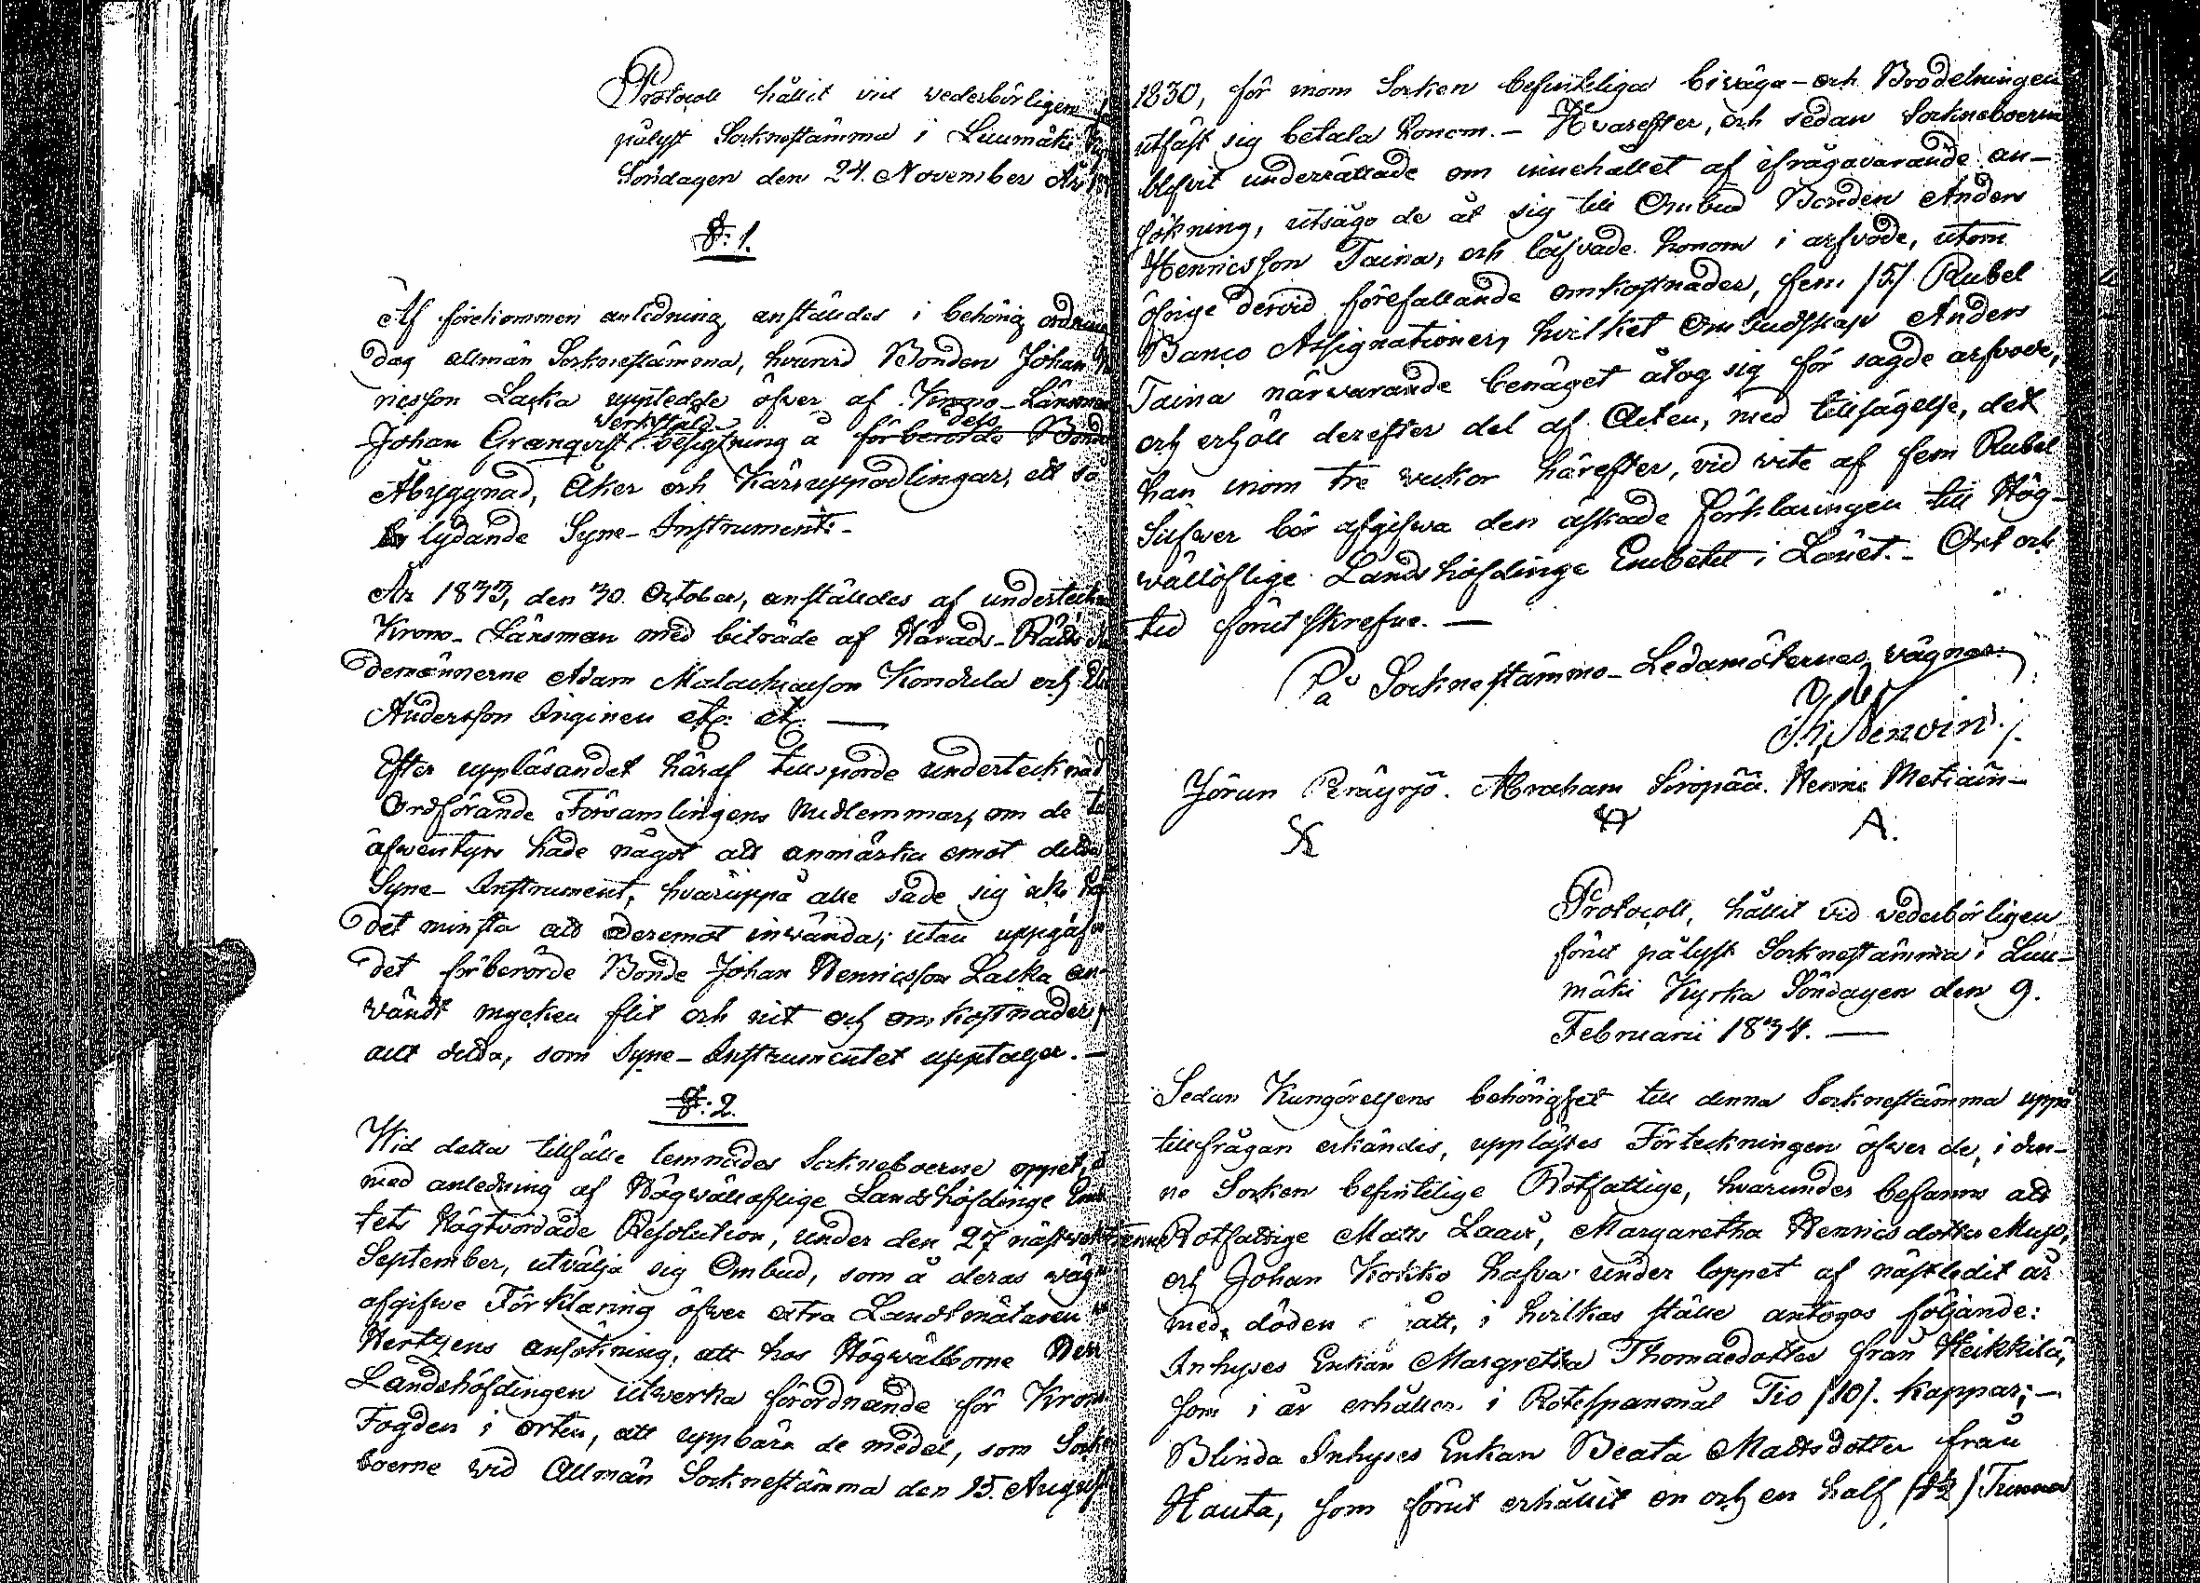 Protocoll hållit vid vederbörligen
pålyst Sockneſtämma i Luumäki
Söndagen den 24. November År
§: 1.
Af förekommen anledning anſtäldes i behörig ordning
dag allmän Sockneſtämma, hvarvid Bonden Johan
nicsſon Lacka uppledſte öfver af Krono-Länsman
Johan Granqviſt verkſtäld beſigtning å förberörde deſs Bonde
Åbyggnad, Åker och Kärruppodlingar, ett så
lydande Syne-Inſtrument:-
År 1833, den 30. October, anſtäldes af underteckn
Krono-Länsman med biträde af Härads-Rätts
demännerne Adam Malachiasſon Kondula och
Andersſon Inginen etc. etc. —
Efter uppläsandet häraf tillsporde undertecknad
Ordförande Församlingens Medlemmar, om de
äfwentyrs hade något att anmärka emot detta
Syne-Inſtrument, hvaruppå alle sade sig icke haf
det minſta att deremot inwända; utan uppgåfvo
det förberörde Bonde Johan Henricsſon Lacka an-
vändt mycken flit och nit och omkoſtnader,
allt detta, som Syne-Inſtrumentet upptager. —
§: 2.
Wid detta tillfälle lemnades Sockneboerne öppet,
med anledning af Högwällofliga Landshöfdinge Emb
tets Högtvördade Reſolution, under den 27 näſtvek
September, utvälja sig Ombud, som å deras väg
afgifwe Förklaring öfwer extra Landtmätaren
Hertzens anſökning, att hos Högwälborne Herr
Landshöfdingen utwerka förordnande för Krono
Fogden i orten, att uppbära de medel, som Sockne
boerne vid Allmän Sockneſtämma den 15. Auguſti
1830, för inom Socken befinteliga biwäga- och Brodelningen
utfäſt sig betala honom. - Hvarefter, och sedan Sockneboerne
blifvit underrättade om innehållet af ifrågavarande an-
ſökning, utsågo de åt sig till Ombud Bonden Anders
Henricsſon Taina, och låfvade honom i arfvode, utom
öfrige dervid förefallande omkoſtnader, fem /5/ Rubel
Banco Aſſignationer, hvilket Ombudſkap Anders
Taina närwarande benäget åtog sig för sagde arfvode,
och erhöll derefter del af Acten, med tillſägelſe, det
han inom tre veckor härefter, vid wite af fem Rubel
Silfwer bör afgifwa den äſkade förklaringen till Hög-
wällöflige Landshöfdinge Embetet i Länet. - Ort och
tid förutſkrefne. —
På Sockneſtämmo-Ledamöternes vägnar:
Jöran Peräyrjö. Abraham Siropää. Henric Metiäin-
A.
Protocoll, hållit vid vederbörligen
förut pålyſt Sockneſtämma i Luu-
mäki Kyrka Söndagen den 9.
Februarii 1834. —
Sedan Kungörelſens behörighet till denna Sockneſtämma uppå
tillfrågan erkändis, uppläſtes Förteckningen öfwer de, i den-
na Socken befintelige Rotfattige, hvarunder befanns att
Rotfattige Matts Laari, Margaretha Henricsdotter Muſo,
och Johan Kokko hafva under loppet af näſtledit år
med döden att, i hvilkas ſtälle antogos följande:
Inhyses Enkan Margretha Thomaedotter från Heikkilä,
ſom i år erhåller i Roteſpanmål Tio /10/. kappar; —
Blinda Inhyses Enkan Beata Mattsdotter från
Hauta, ſom förut erhållit en och en half /1½/ Tunna